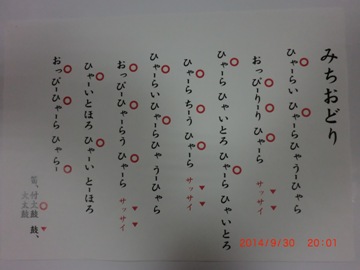 みちおどり
ひゃーらい ひゃーらひゃうーひゃら
おっぴーりーり ひゃーら サッサイ
ひゃーら ひゃいとろ ひゃーら ひゃいとろ
ひゃーら ちーう ひゃーら サッサイ
ひゃーらい ひゃーらひゃ うーひゃら
おっぴーひゃーらう ひゃーら サッサイ
ひゃーいとほろ ひゃーい とーほろ
おっぴーひゃーらひゃらー
笛、付太鼓 鼓、
大太鼓
2014/9/30 20:01